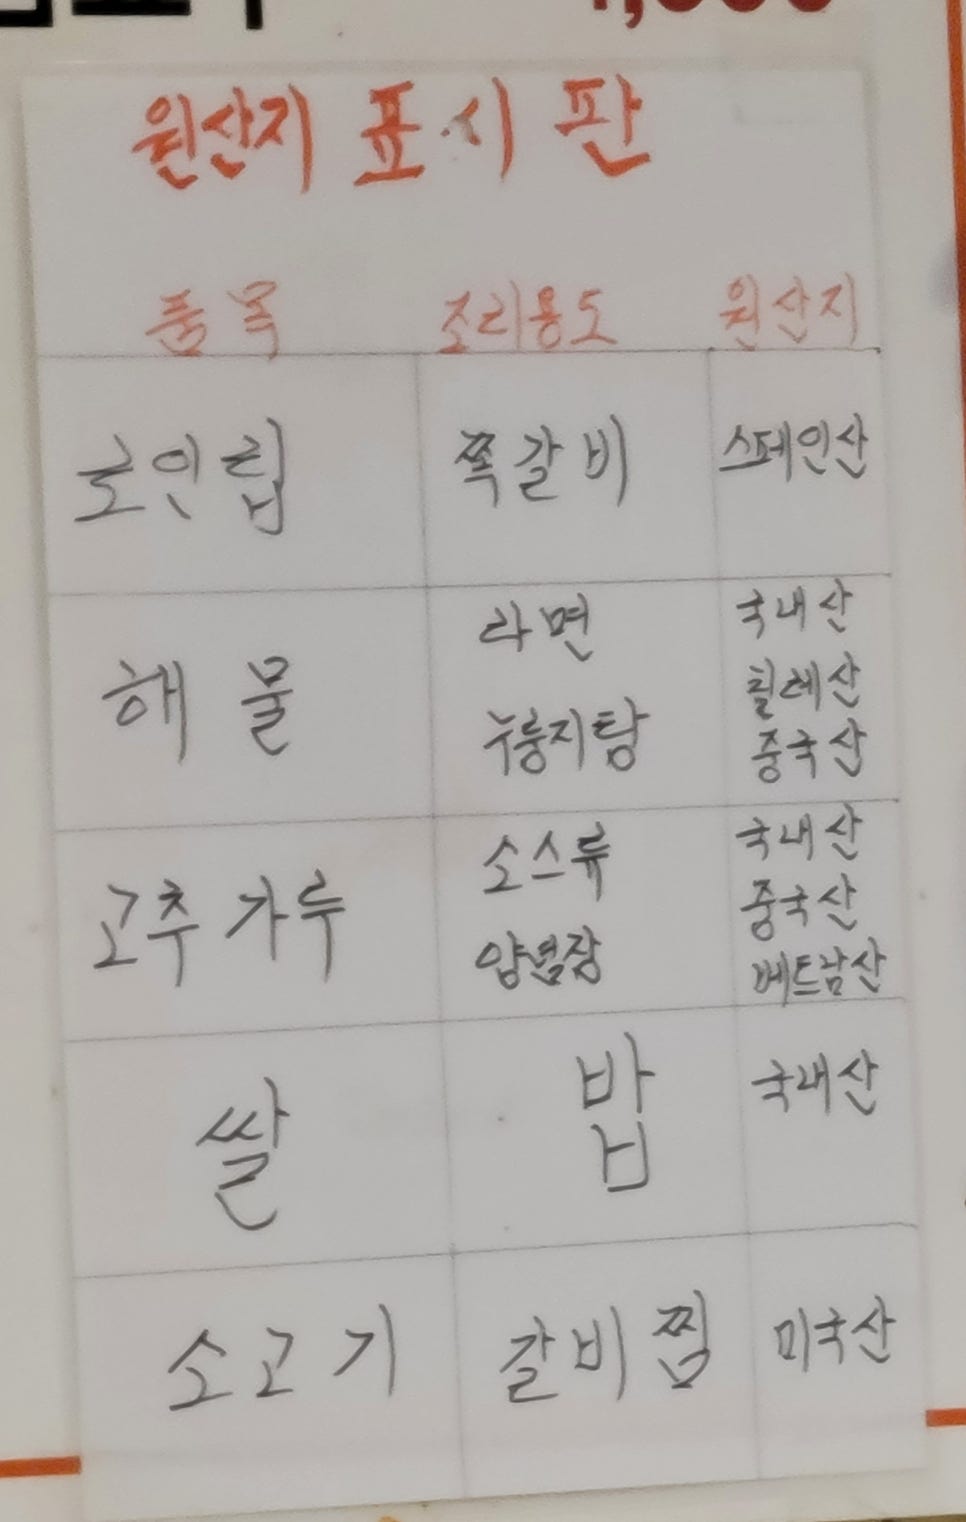 원산지 표시판
품목 조리용도 원산지
로인립 쪽갈비 스페인산
해물 라면 국내산
누룽지탕 칠레산
중국산
고추가루 소스류 국내산
양념장 중국산
베트남산
쌀 밥 국내산
소고기 갈비찜 미국산